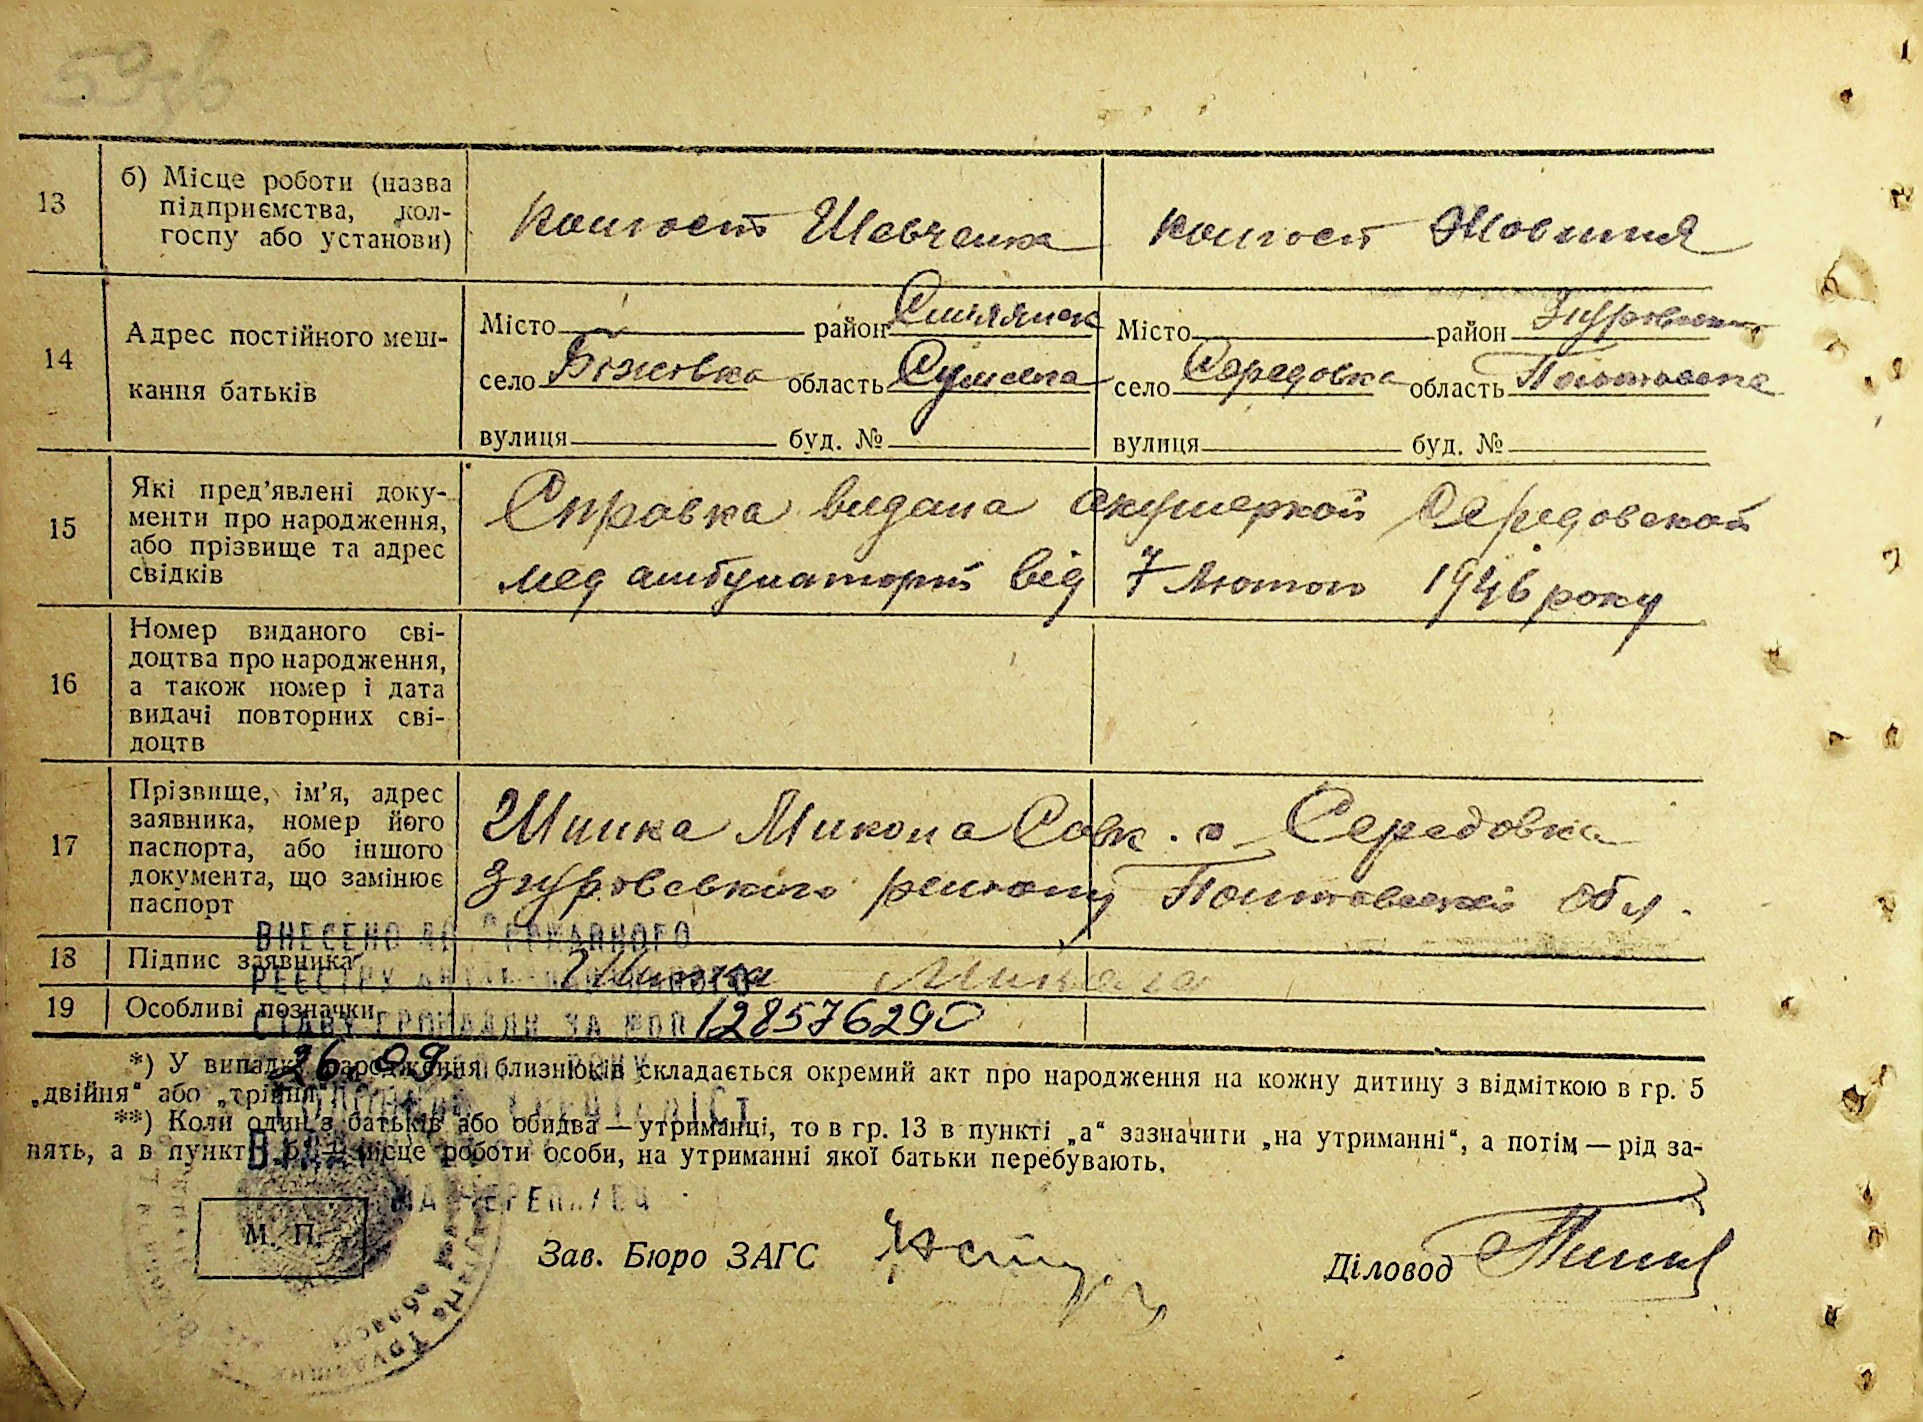 59зв
13
б) Місце роботи (назва
підприємства, кол-
госпу або установи)
Колгосп Шевченка
Колгосп Жовтня
14
Адрес постійного меш-
кання батьків
Місто район
село Біжовка область Сумська
вулиця буд. №
Місто район Згуровский
село Середовка область Полтовска
вулиця буд. №
15
Які пред’явлені доку-
менти про народження,
або прізвище та адрес
свідків
Справка видана акушеркой Середовской
мед амбулаторій від 7 Лютого 1946 року
16
Номер виданого сві-
доцтва про народження,
а також номер і дата
видачі повторних сві-
доцтв
17
Прізвище, ім’я, адрес
заявника, номер його
паспорта, або іншого
документа, що замінює
паспорт
Микола с Середовка
Згуровського району Полтовскої обл.
18
Підпис заявника
Микола
19
Особливі позначки
ВНЕСЕНО ДО ДЕРЖАВНОГО
РЕЄСТРУ АКТІВ ЦИВІЛЬНОГО
СТАНУ ГРОМАДЯН ЗА №00 128576290
26.09 РОКУ
*) У випадку народження близнюків складається окремий акт про народження на кожну дитину з відміткою в гр. 5
„двійня“ або „трійня“
ГОЛОВНИЙ СПЕЦІАЛІСТ
**) Коли один з батьків або обидва — утриманці, то в гр. 13 в пункті „а“ зазначити „на утриманні“, а потім — рід за-
нять, а в пункті „б“ — місце роботи особи, на утриманні якої батьки перебувають.
М. П.
Зав. Бюро ЗАГС
Діловод